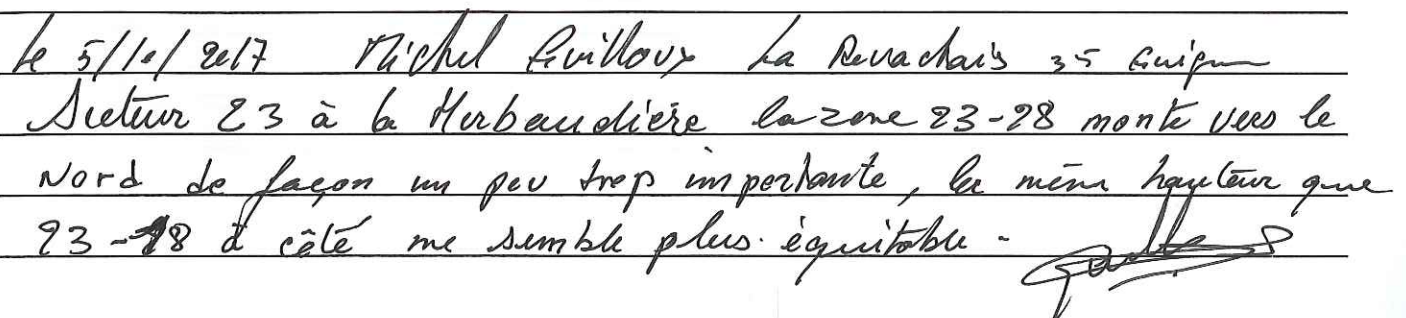 le 5/10/2017 Michel Guilloux La 35 Guignen
Secteur 23 à la Herbaudière la zone 23-28 monte vers le
Nord de façon un peu trop importante, la même hauteur que
23-18 à côté me semble plus équitable -